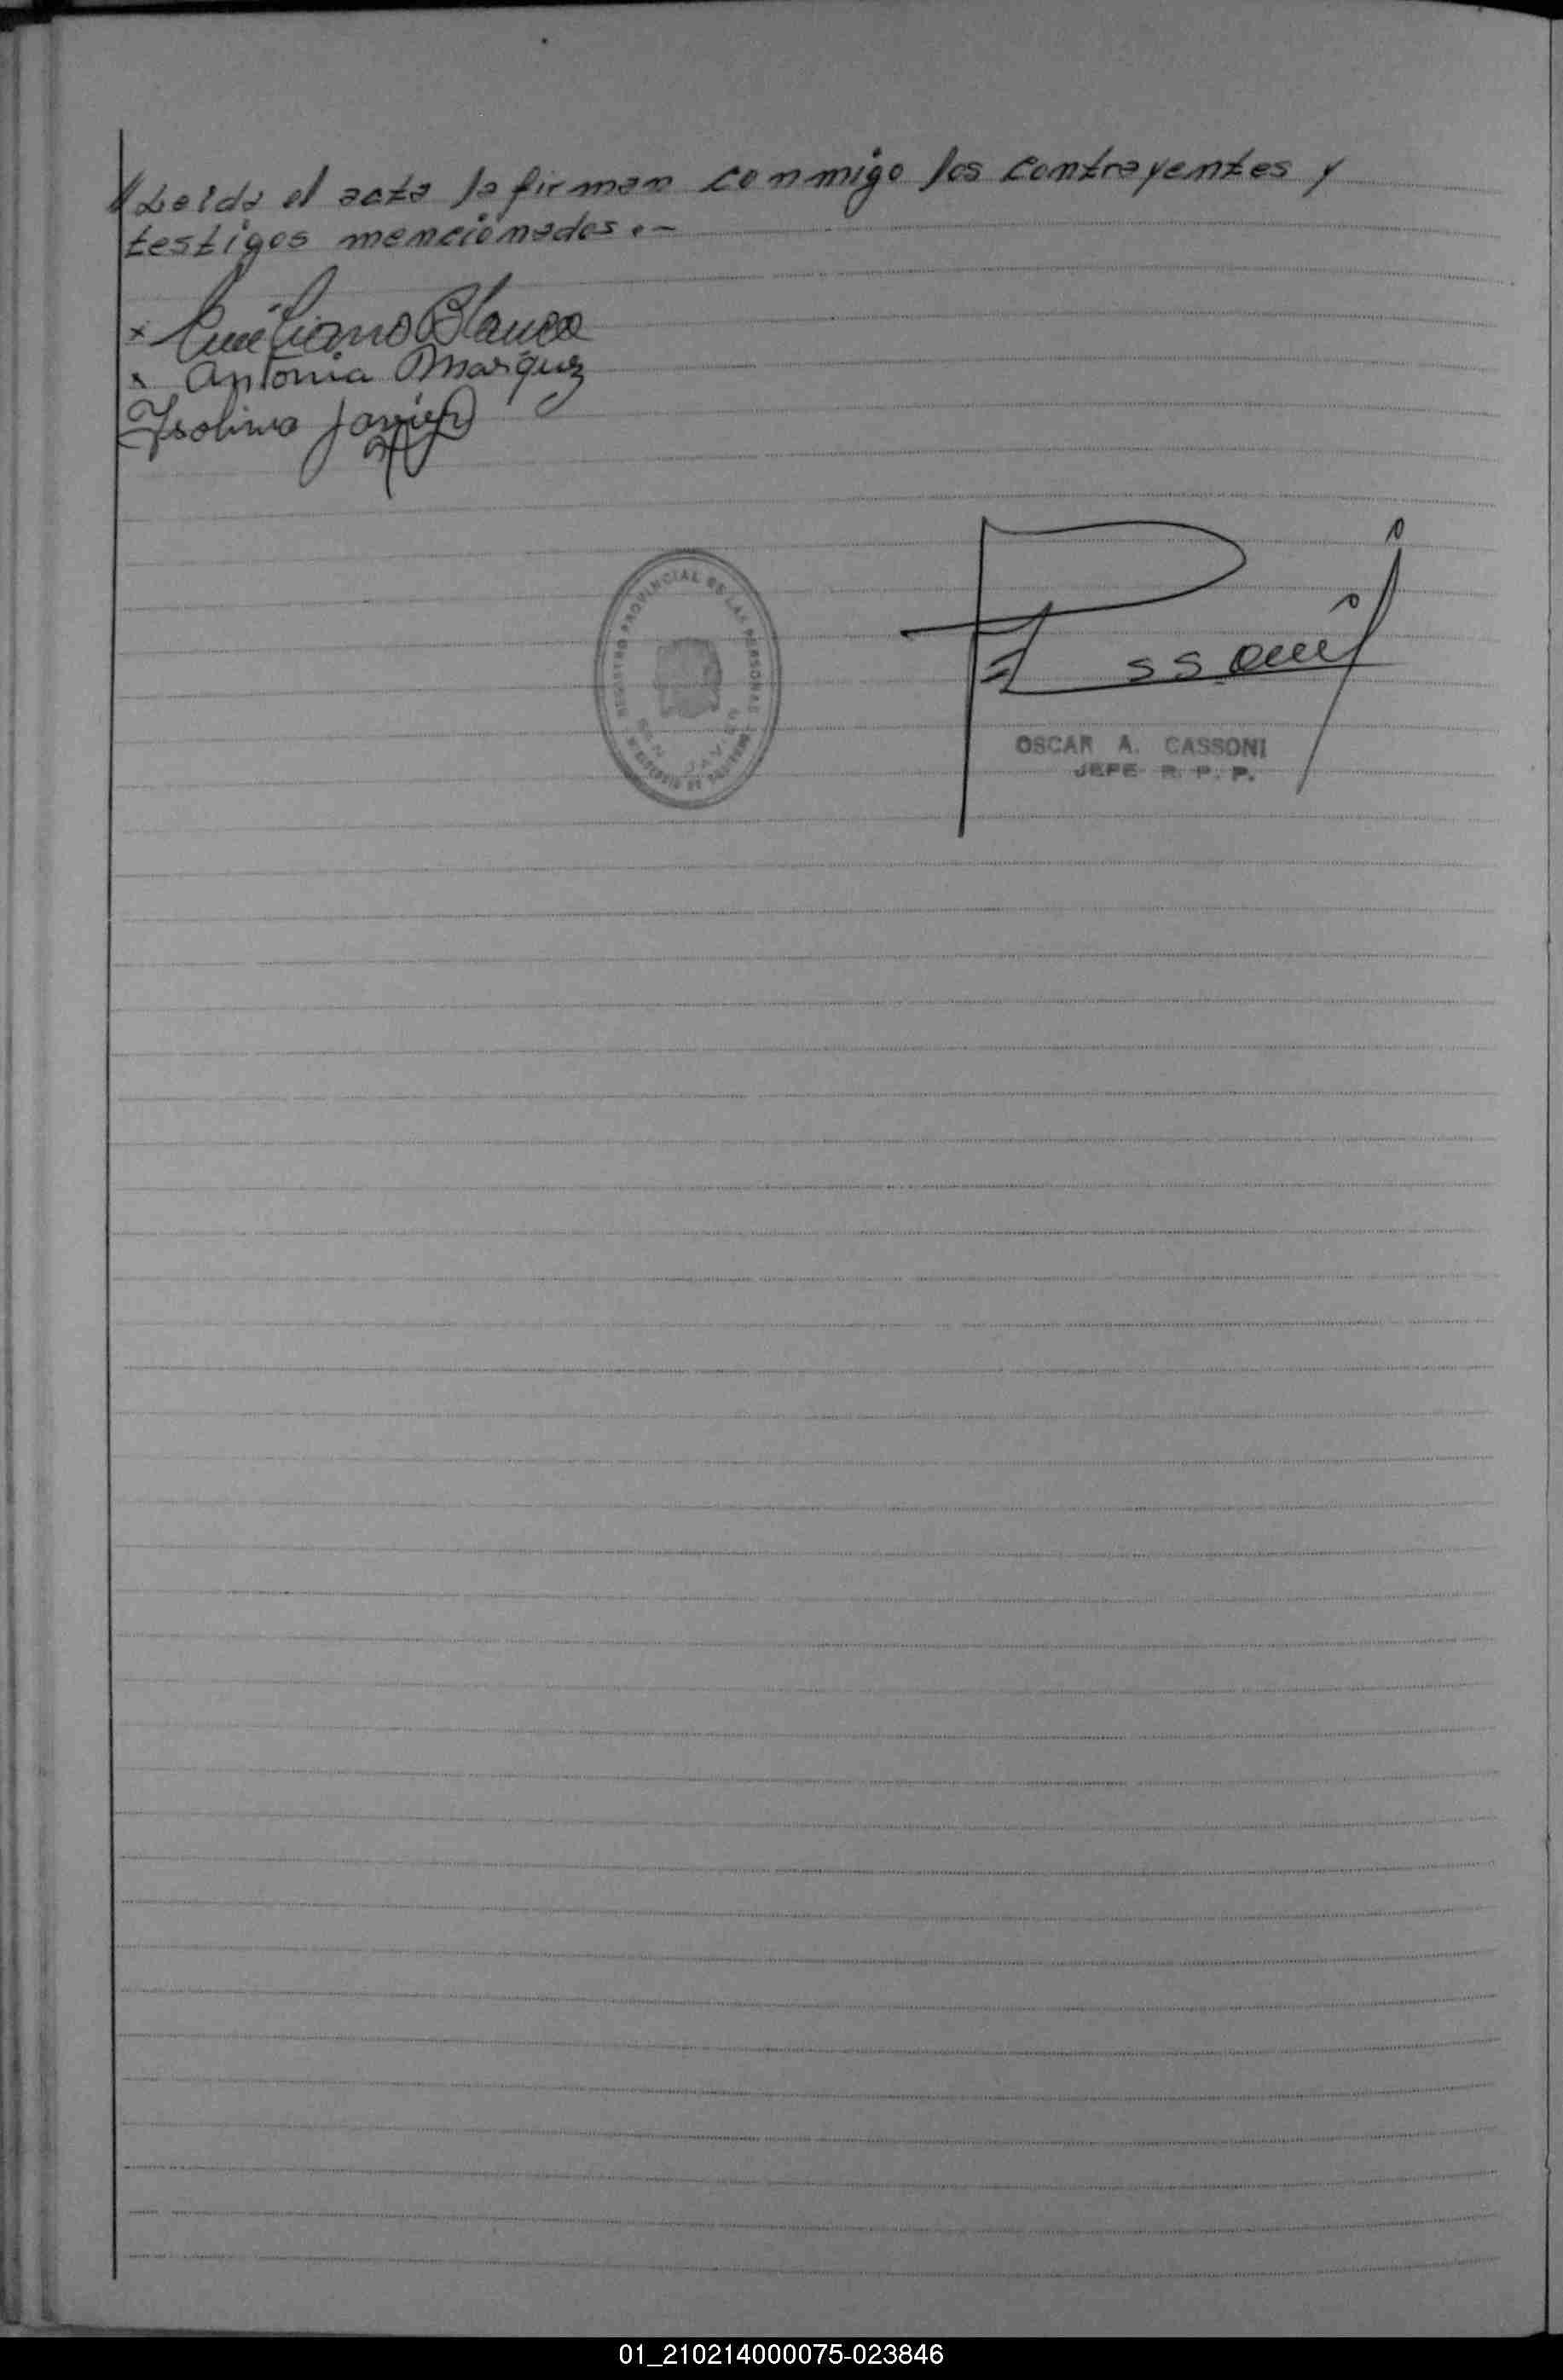 //Leida el acta la firman conmigo los contrayentes y
testigos mencionados.-
x Emiliano Blanco
x Antonia Marquez
Isolina Javier
REGISTRO PROVINCIAL DE LAS PERSONAS
SAN JAVIER
OSCAR A. CASSONI
JEFE R. P. P.
01_210214000075-023846